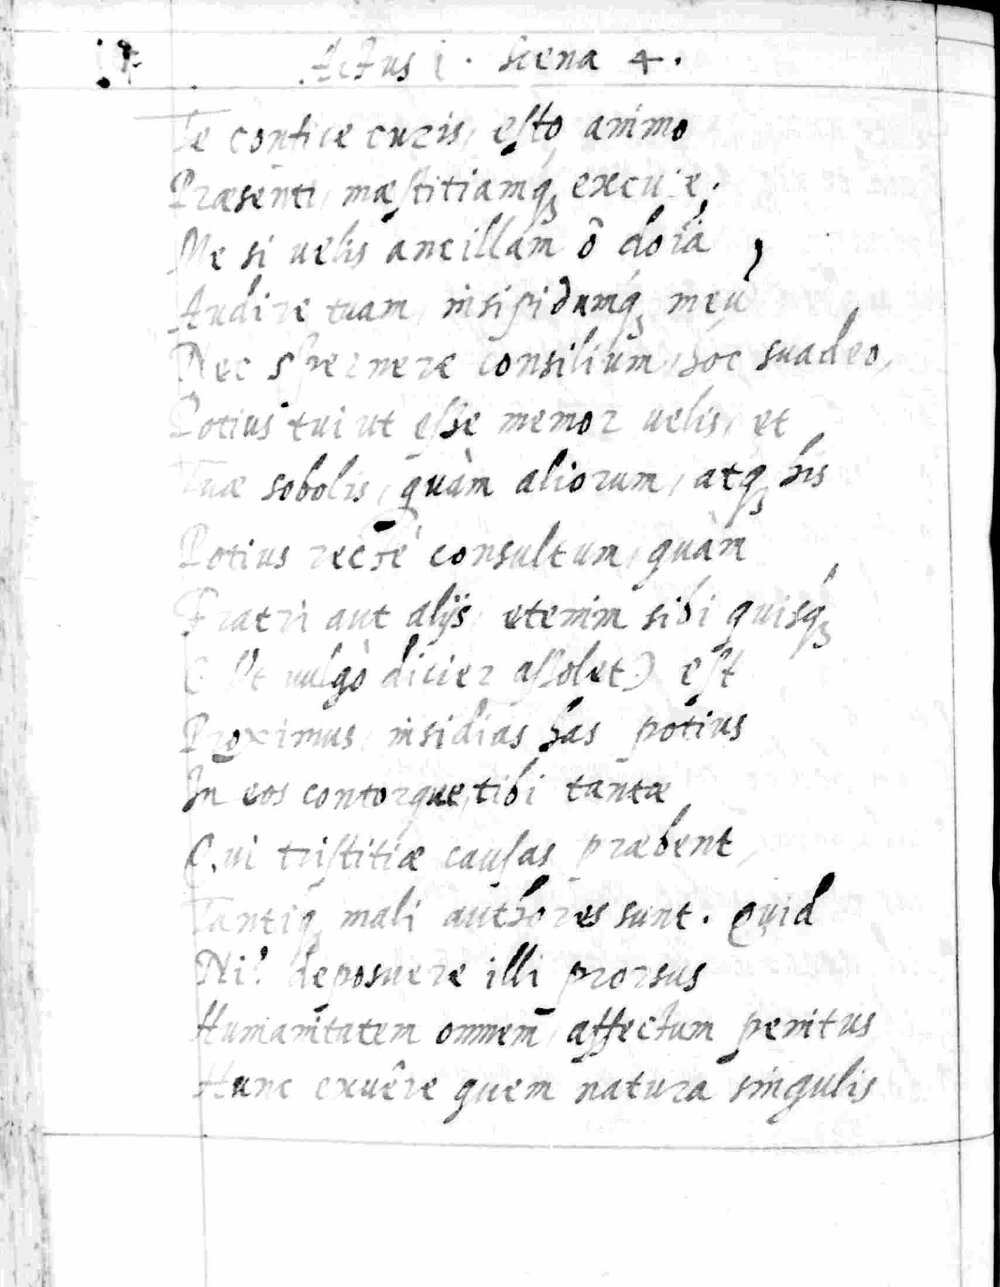 17 Actus i. Scena 4.
Te confice curis, esto animo
Præsenti, mæstitiamq₃ excute;
Me si velis ancillam ô dōia,
Audire tuam, insipidumq₃ meū
Nec spernere consilium, hóc suadeo,
Potius tui ut esse memor velis, et
Tuæ sobolis, quàm aliorum, atq₃ his
Potius rectè consultum, quàm
Fratri aut alijs, etenim sibi quisq₃
(Ut vulgò dicier assolet) est
Proximus, insidias has potius
In eos contorque, tibi tantæ
Qui tristitiæ causas præbent,
Tantiq₃ mali authores sunt. Quid
Ni? deposuere illi prorsus
Humanitatem omnem, affectum penitus
Hunc exuêre quem natura singulis